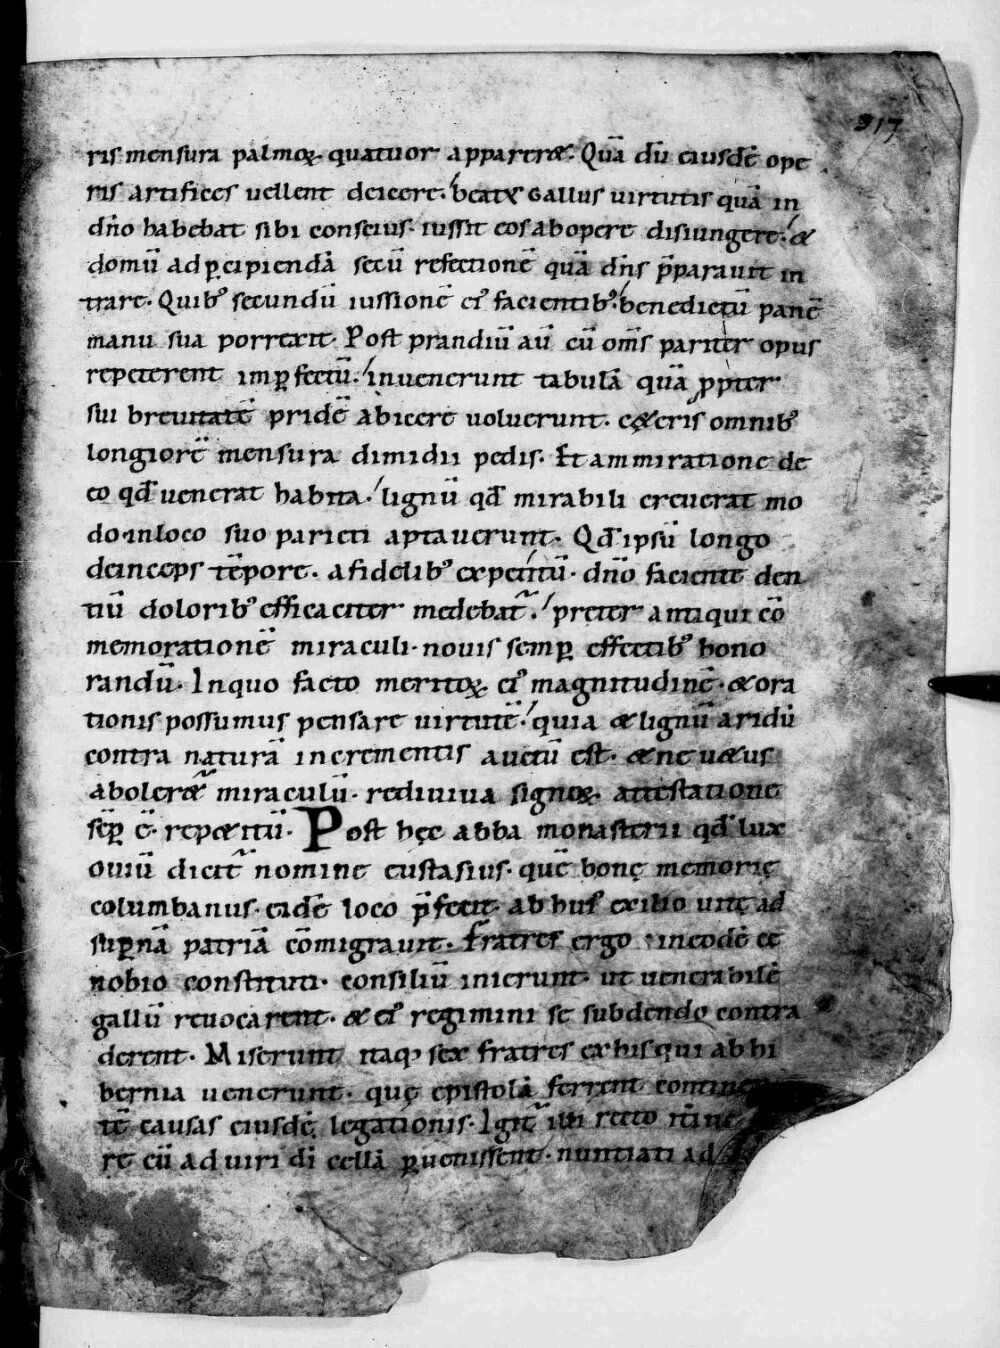 317
ris mensura palmoꝝ. quatuor apparer&. Quā dū eiusdē ope
ris artifices uellent deicere. beatꝰ Gallus uirtutis quā in
dn̄o habebat sibi conscius. iussit eos ab opere disiungere. &
domū ad ꝑcipiendā secū refectionē quā dn̄s p̄parauit in
trare. Quibꝰ secundū iussionē eiꝰ facientibꝰ. benedictū panē
manu sua porrexit. Post prandiū aū cū om̄s pariter opus
repeterent imꝑfectū. inuenerunt tabulā quā ꝓpter
sui breuitatē pridē abicere uoluerunt. cę&eris omnibꝰ
longiorē mensura dimidii pedis. Et ammiratione de
eo qd̄ uenerat habita. lignū qd̄ mirabili creuerat mo
do. in loco suo parieti aptauerunt. Qd̄ ipsū longo
deinceps tēpore. a fidelibꝰ expetitū. dn̄o faciente den
tiū doloribꝰ efficaciter medebat̃. pręter antiqui cō
memorationē miraculi. nouis semꝑ effectibꝰ hono
randū. In quo facto meritoꝝ eiꝰ magnitudinē. & ora
tionis possumus pensare uirtutē. quia & lignū aridū
contra naturā incrementis auctū est. & ne u&us
aboler&̃ miraculū. rediuiua signoꝝ. attestatione
sēꝑ ē. rep&itū. Post hęc abba monasterii qd̄ lux
ouiū dicit̃ nomine eustasius. quē bonę memorię
columbanus. eidē loco p̄fecit. ab huiꝰ exilio uitę ad
suꝑnā patriā cōmigrauit. Fratres ergo in eodē ce
nobio constituti. consiliū inierunt. ut uenerabilē
gallū reuocarent. & eiꝰ regimini se subdendo contra
derent. Miserunt itaqꝫ sex fratres ex his qui ab hi
bernia uenerunt. quę epistolā ferrent contine
tē causas eiusdē legationis. Igit̃ illi recto itine
re cū ad uiri dī cellā ꝑuenissent. nuntiati ad